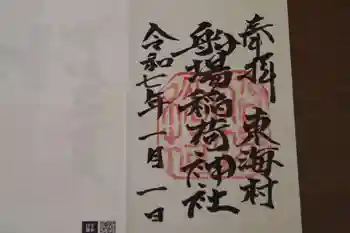 奉拝 東海村
船場稲荷神社
令和七年一月一日